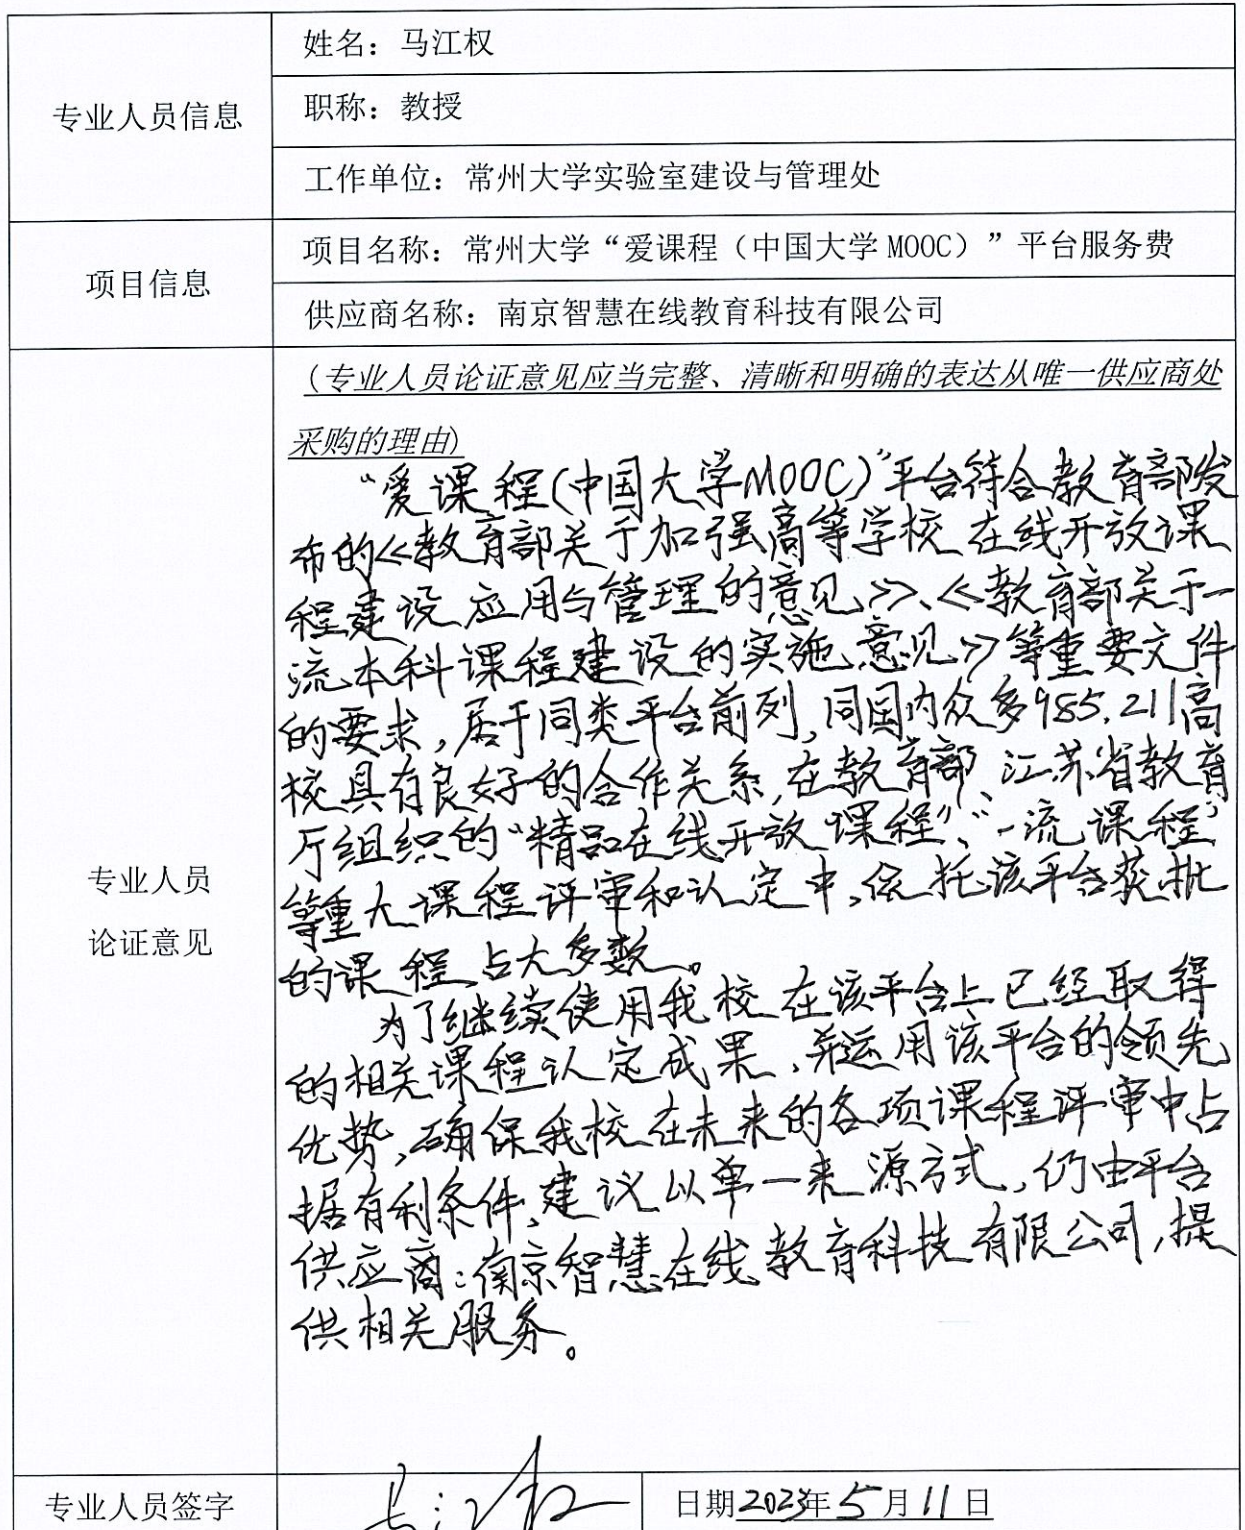 专业人员信息
姓名：马江权
职称：教授
工作单位：常州大学实验室建设与管理处
项目信息
项目名称：常州大学“爱课程（中国大学 MOOC）”平台服务费
供应商名称：南京智慧在线教育科技有限公司
专业人员
论证意见
（专业人员论证意见应当完整、清晰和明确的表达从唯一供应商处
采购的理由）
“爱课程(中国大学MOOC)”平台符合教育部发
布的《教育部关于加强高等学校在线开放课
程建设应用与管理的意见》、《教育部关于一
流本科课程建设的实施意见》等重要文件
的要求，居于同类平台前列，同国内众多985、211高
校具有良好的合作关系，在教育部、江苏省教育
厅组织的“精品在线开放课程”、“一流课程”
等重大课程评审和认定中，依托该平台获批
的课程占大多数。
为了继续使用我校在该平台上已经取得
的相关课程认定成果，并运用该平台的领先
优势，确保我校在未来的各项课程评审中占
据有利条件，建议以单一来源方式，仍由平台
供应商：南京智慧在线教育科技有限公司，提
供相关服务。
专业人员签字
马江权
日期2023年5月11日